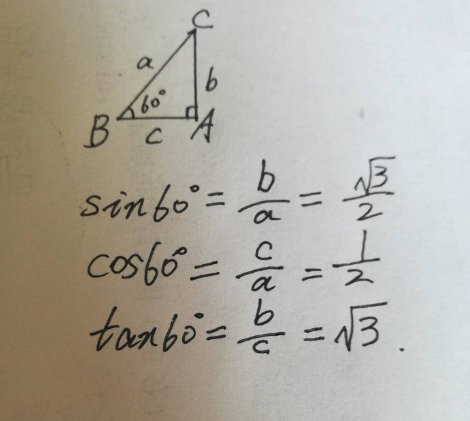 C
a
b
60°
B
c
A
sin60° = b/a = √3/2
cos60° = c/a = 1/2
tan60° = b/c = √3.